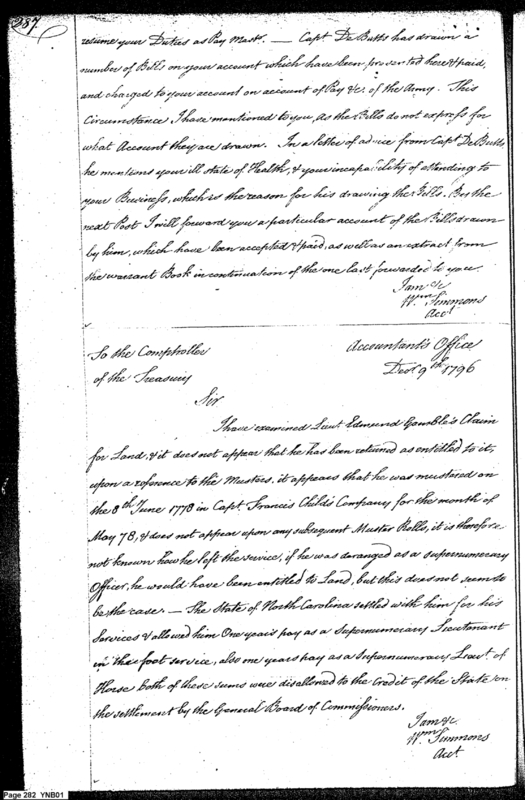 287.
resume your Duties as Pay Mastr. — Capt DeButts has drawn a
number of Bills on your account which have been presented here & paid,
and charged to your account on account of Pay &c. of the Army. This
Circumstance I have mentioned to you, as the Bills do not express for
what Account they are drawn. In a letter of advice from Capt DeButts
he mentions your ill state of Health, & your incapability of attending to
your Business, which is the reason for his drawing the Bills. By the
next Post I will forward you a particular account of the Bills drawn
by him, which have been accepted & paid, as well as an extract from
the warrant Book in continuation of the one last forwarded to you.
I am &c
Wm Simmons
Acct
To the Comptroller
of the Treasury
Accountant's Office
Decr 9th 1796
Sir
I have examined Lieut Edmund Gamble's Claim
for Land, & it does not appear that he has been returned as entitled to it,
upon a reference to the Musters, it appears that he was mustered on
the 8th June 1778 in Capt Francis Child's Company for the month of
May 78, & does not appear upon any subsequent Muster Rolls, it is therefore
not known how he left the service, if he was deranged as a supernumerary
Officer, he would have been entitled to Land, but this does not seem to
be the case. — The State of North Carolina settled with him for his
Services & allowed him One years pay as a Supernumerary Lieutenant
in the foot service, also one years pay as a Supernumerary Lieut. of
Horse both of these sums were disallowed to the credit of the State on
the settlement by the General Board of Commissioners.
I am &c.
Wm Simmons
Acct.
Page 282 YNB01